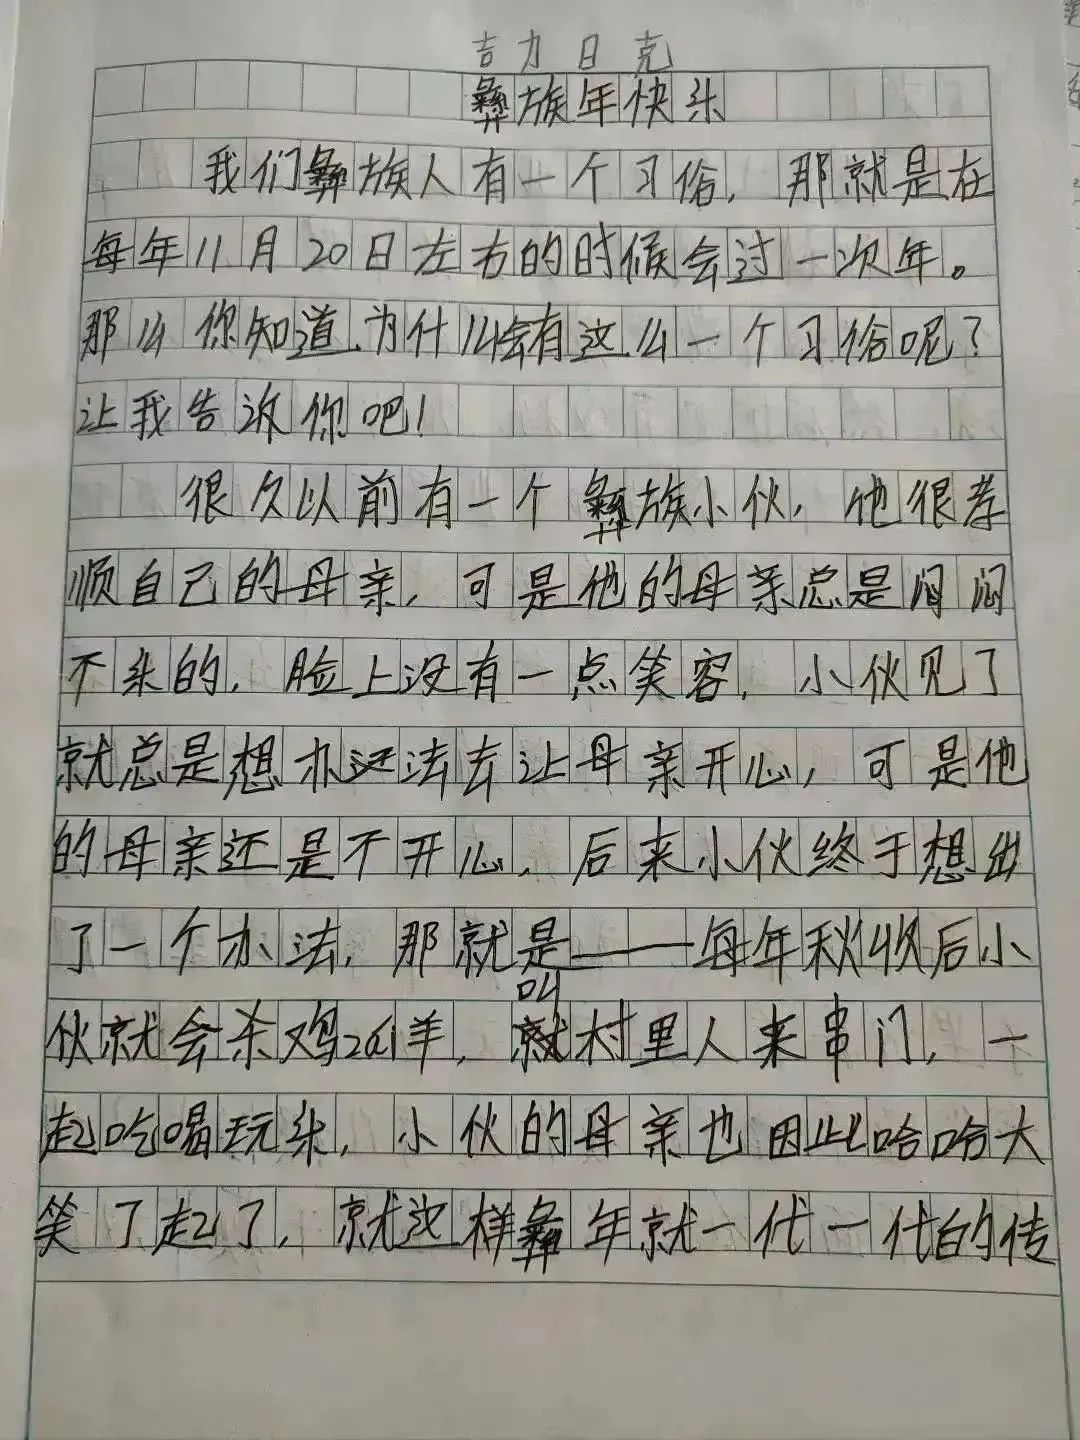 吉力日克
彝族年快乐
我们彝族人有一个习俗，那就是在
每年11月20日左右的时候会过一次年。
那么你知道为什么会有这么一个习俗呢？
让我告诉你吧！
很久以前有一个彝族小伙，他很孝
顺自己的母亲，可是他的母亲总是闷闷
不乐的，脸上没有一点笑容，小伙见了
就总是想办法去让母亲开心，可是他
的母亲还是不开心，后来小伙终于想出
了一个办法，那就是——每年秋收后小
伙就会杀鸡zai羊，叫村里人来串门，一
起吃喝玩乐，小伙的母亲也因此哈哈大
笑了起了，就这样彝年就一代一代的传